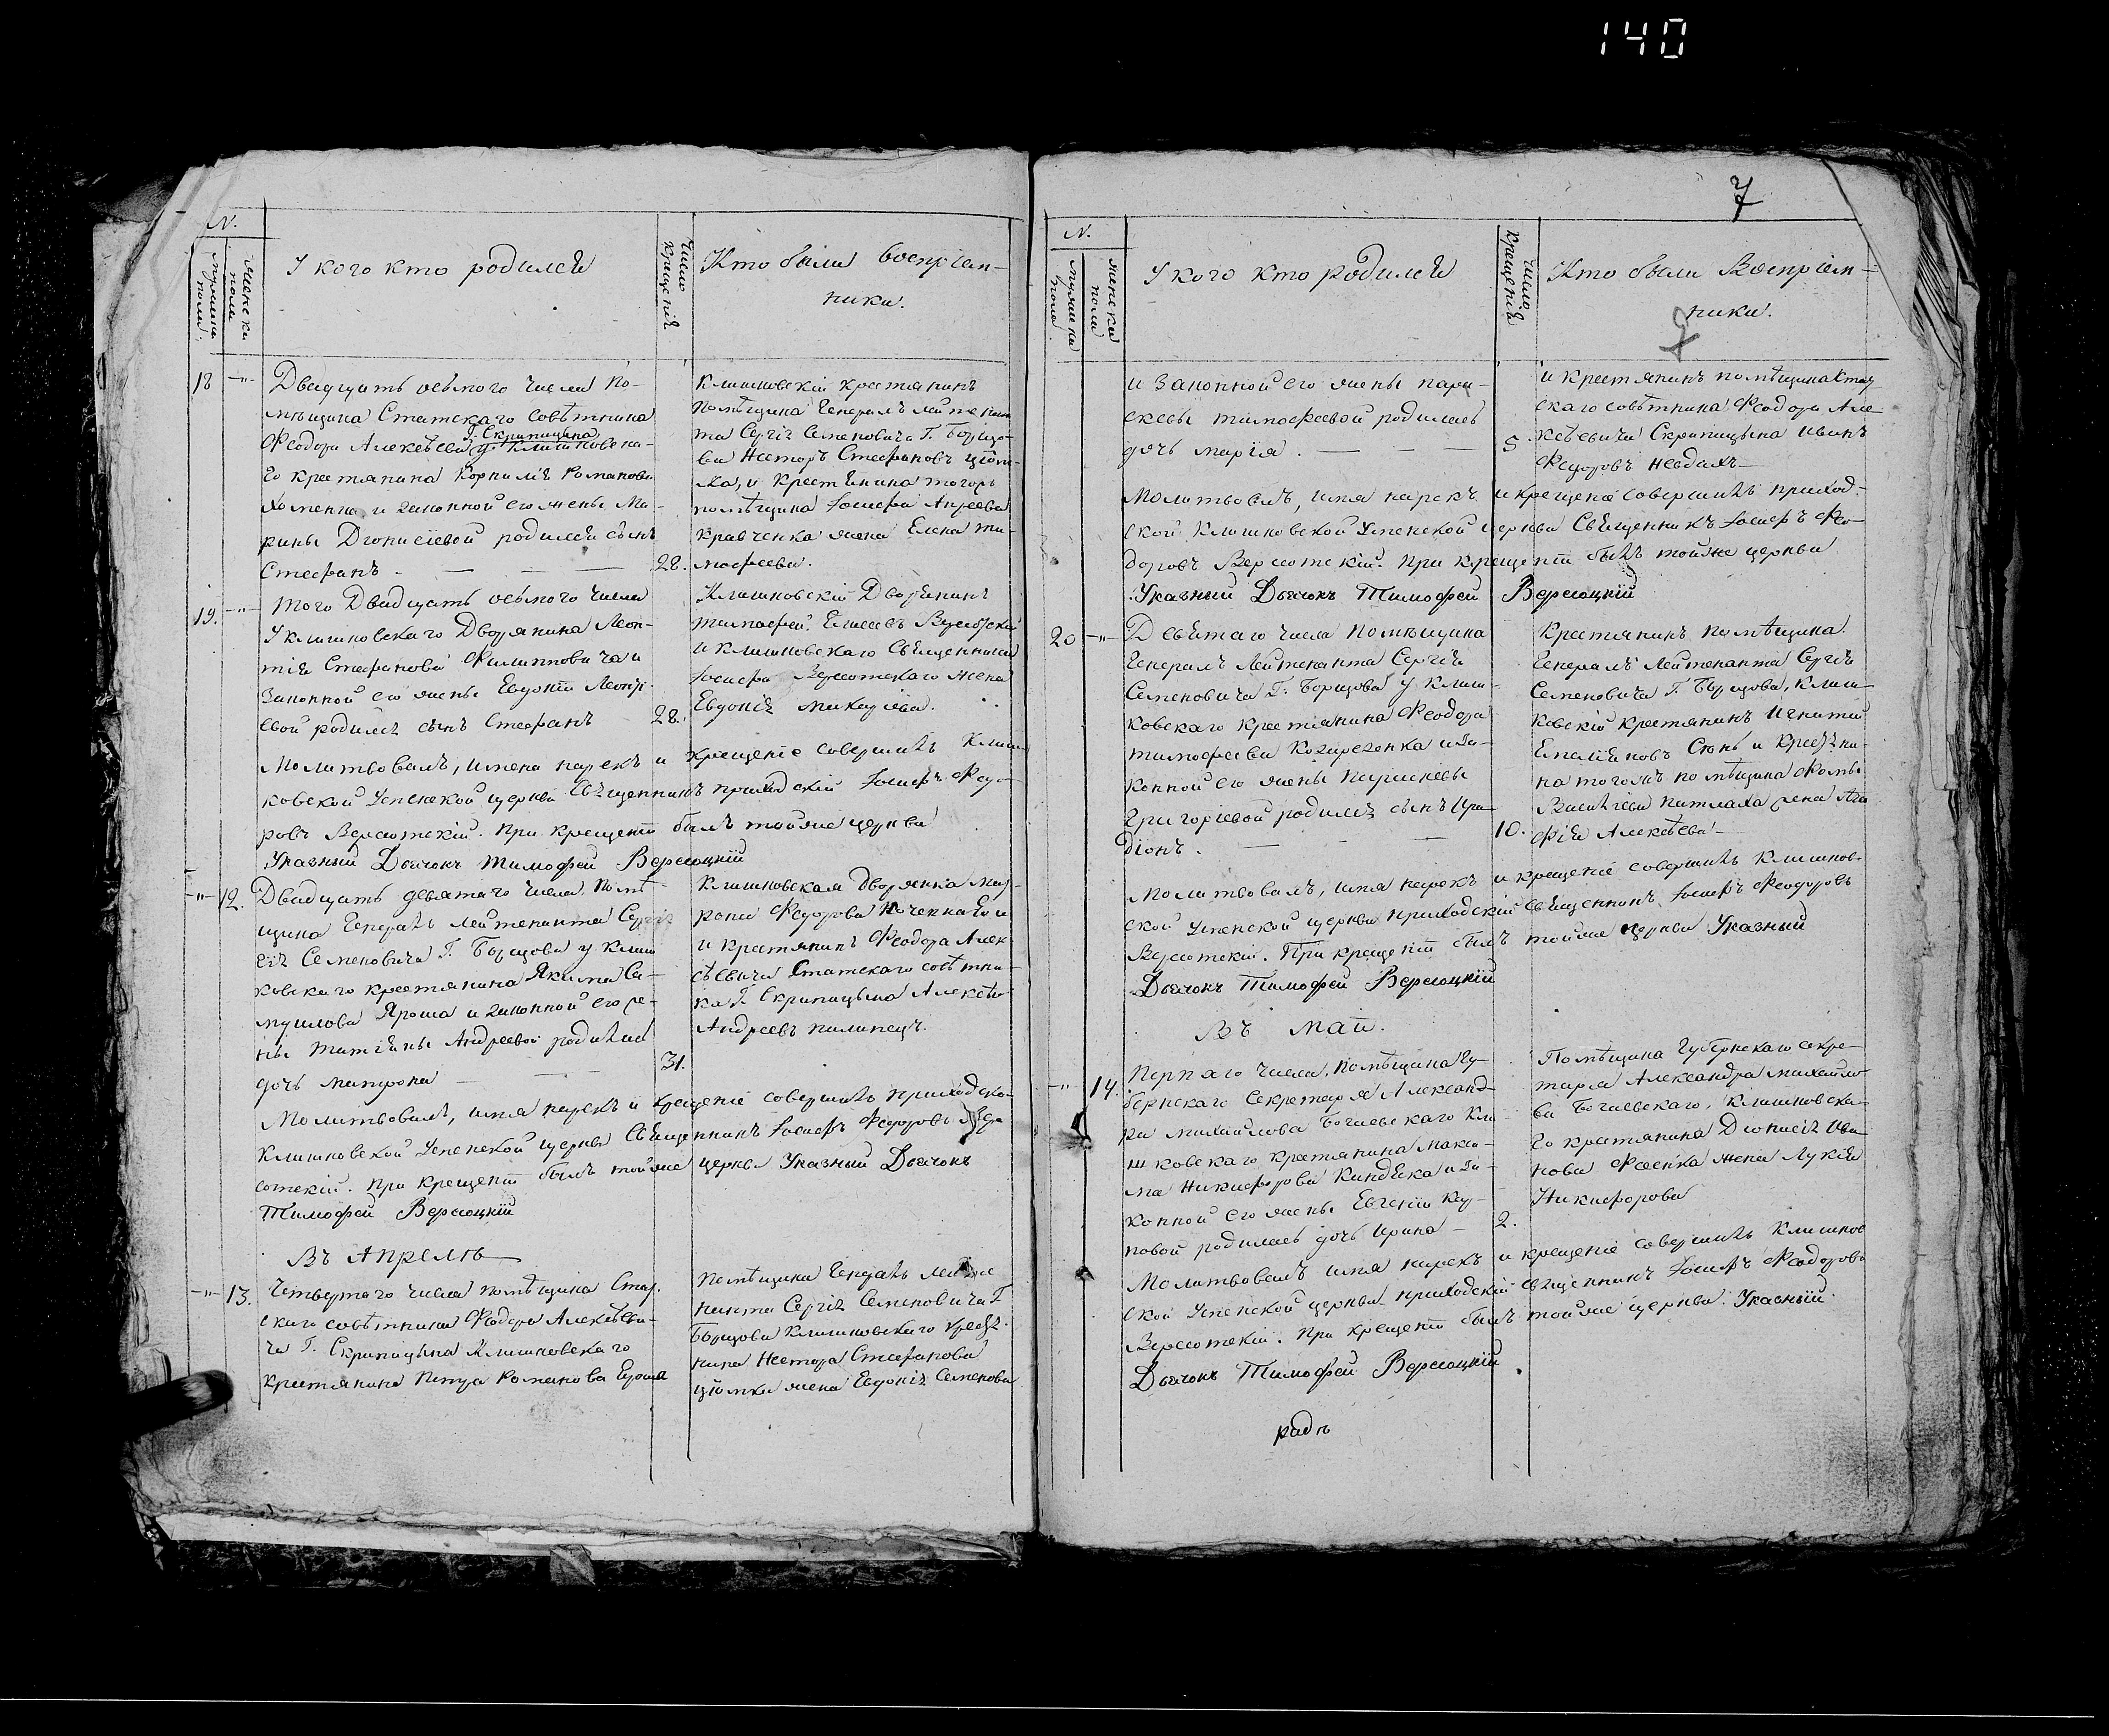 140
N.
мужска пола
женска пола
У кого кто родился
Число крещенія
Кто были воспріем-
ники.
18 -"- Двадцать осьмого числа По-
мѣщика Статскаго совѣтника
Г. Скрипицына
Феодора Алекѣева у Клишковска-
го крестянина Корнилія Романова
Хоменка и законной его жены Ма-
рины Діонисіевой родился сынъ
Стефанъ. — — — 28.
Клишковскій крестянинъ
Помѣщика Генералъ Лейтенан
та Сергія Семеновича Г. Борщо-
ва Несторъ Стефановъ Цюм-
ка, и крестянина тогожъ
помѣщика Іосифа Андреева
Кравченка жена Елена Ти-
мофеева.
19. -"- Того Двадцать осьмого числа
У клишковскаго Дворянина Леон-
тія Стефанова Филипповича и
Законной его жены Евдокіи Леонті-
евой родился сынъ Стефанъ 28.
Клишковскій Дворянинъ
Тимофей Елисеевъ
и клишковскаго Священника
Іосифа Версотскаго жена
Евдокія Михаиіева.
Молитвовалъ, имена нарекъ и крещеніе совершилъ Клиш
ковской Успенской церкви Священникъ приходскій Іосифъ Федо-
ровъ Версотскій. При крещеніи былъ тойже церкви
Указный Дьячокъ Тимофей Версоцкій
-"- 12. Двадцать девятаго числа Помѣ-
щика Генералъ Лейтенанта Сергія
Семеновича Г. Борщова у клиш
ковскаго крестянина Якима Са-
муилова Яроша и законной его же-
ны Татіяны Андреевой родилась
дочь Матрона — — 31.
Клишковская дворянка Мат-
рона Федорова
и крестянинъ Феодора Алек
сѣевича Статскаго совѣтни-
ка Г. Скрипицына Алексѣй
Андреевъ Пилипецъ.
Молитвовалъ, имя нарекъ и крещеніе совершилъ приходской
Клишковской Успенской церкви Священникъ Іосифъ Федоровъ Вер
сотскій. При крещеніи былъ тойже церкви Указный Дьячокъ
Тимофей Версоцкій
Въ Апрелѣ
-"- 13. Четвертаго числа помѣщика Стат-
скаго совѣтника Феодора Алексѣеви-
ча Г. Скрипицына Клишковскаго
крестянина Петра Романова Ероша
Помѣщика Генералъ Лейте
нанта Сергія Семеновича Г.
Борщова Клишковскаго крестя-
нина Нестора Стефанова
Цюмки жена Евдокія Семенова
7
N.
мужска пола
женска пола
У кого кто родился
Число крещенія
Кто были Воспріем-
ники.
7
и Законной его жены Пара-
скевы Тимофеевой родилась
дочь Марія. — — — 5
и крестянинъ помѣщика Стат
скаго совѣтника Феодора Але
ксѣевича Скрипицына Иванъ
Федоровъ Неодахъ —
Молитвовалъ, имя нарекъ и крещеніе совершилъ приход-
ской Клишковской Успенской церкви Священникъ Іосифъ Фео-
доровъ Версотскій. При крещеніи былъ тойже церкви
Указный Дьячокъ Тимофей Версоцкій
20 -"- Девятаго числа помѣщика
Генералъ Лейтенанта Сергія
Семеновича Г. Борщова у Клиш-
ковскаго крестянина Феодора
Тимофеева и За-
конной его жены Параскевы
Григоріевой родился сынъ Ира-
діонъ. — — 10.
Крестянинъ помѣщика
Генералъ Лейтенанта Сергія
Семеновича Г. Борщова, Клиш
ковскій крестянинъ Игнатій
Емеліяновъ Сюнь и крестяни-
на тогожъ помѣщика Фомы
Василіева Питлаха жена Ага
фія Алексѣева —
Молитвовалъ, имя нарекъ и крещеніе совершилъ Клишков-
ской Успенской церкви приходскій Священникъ Іосифъ Феодоровъ
Версотскій. При крещеніи былъ тойже церкви Указный
Дьячокъ Тимофей Версоцкій
Въ Маіи.
-"- 14. Перпаго числа, помѣщика Гу-
бернскаго Секретаря Александ-
ра Михайлова Богаевскаго Кли-
шковскаго крестянина Макси-
ма Никифорова Киндѣка и За-
конной его жены Евгеніи Кар-
повой родилась дочь Ирина — 2.
Помѣщика Губернскаго секре-
таря Александра Михайло-
ва Богаевскаго, клишковска-
го крестянина Діонисія Ива
нова Фесенка жена Лукія
Никифорова
Молитвовалъ имя нарекъ и крещеніе совершилъ Клишков
ской Успенской церкви приходскій священникъ Іосифъ Феодоровъ
Версотскій. При крещеніи былъ тойже церкви Указный
Дьячокъ Тимофей Версоцкій.